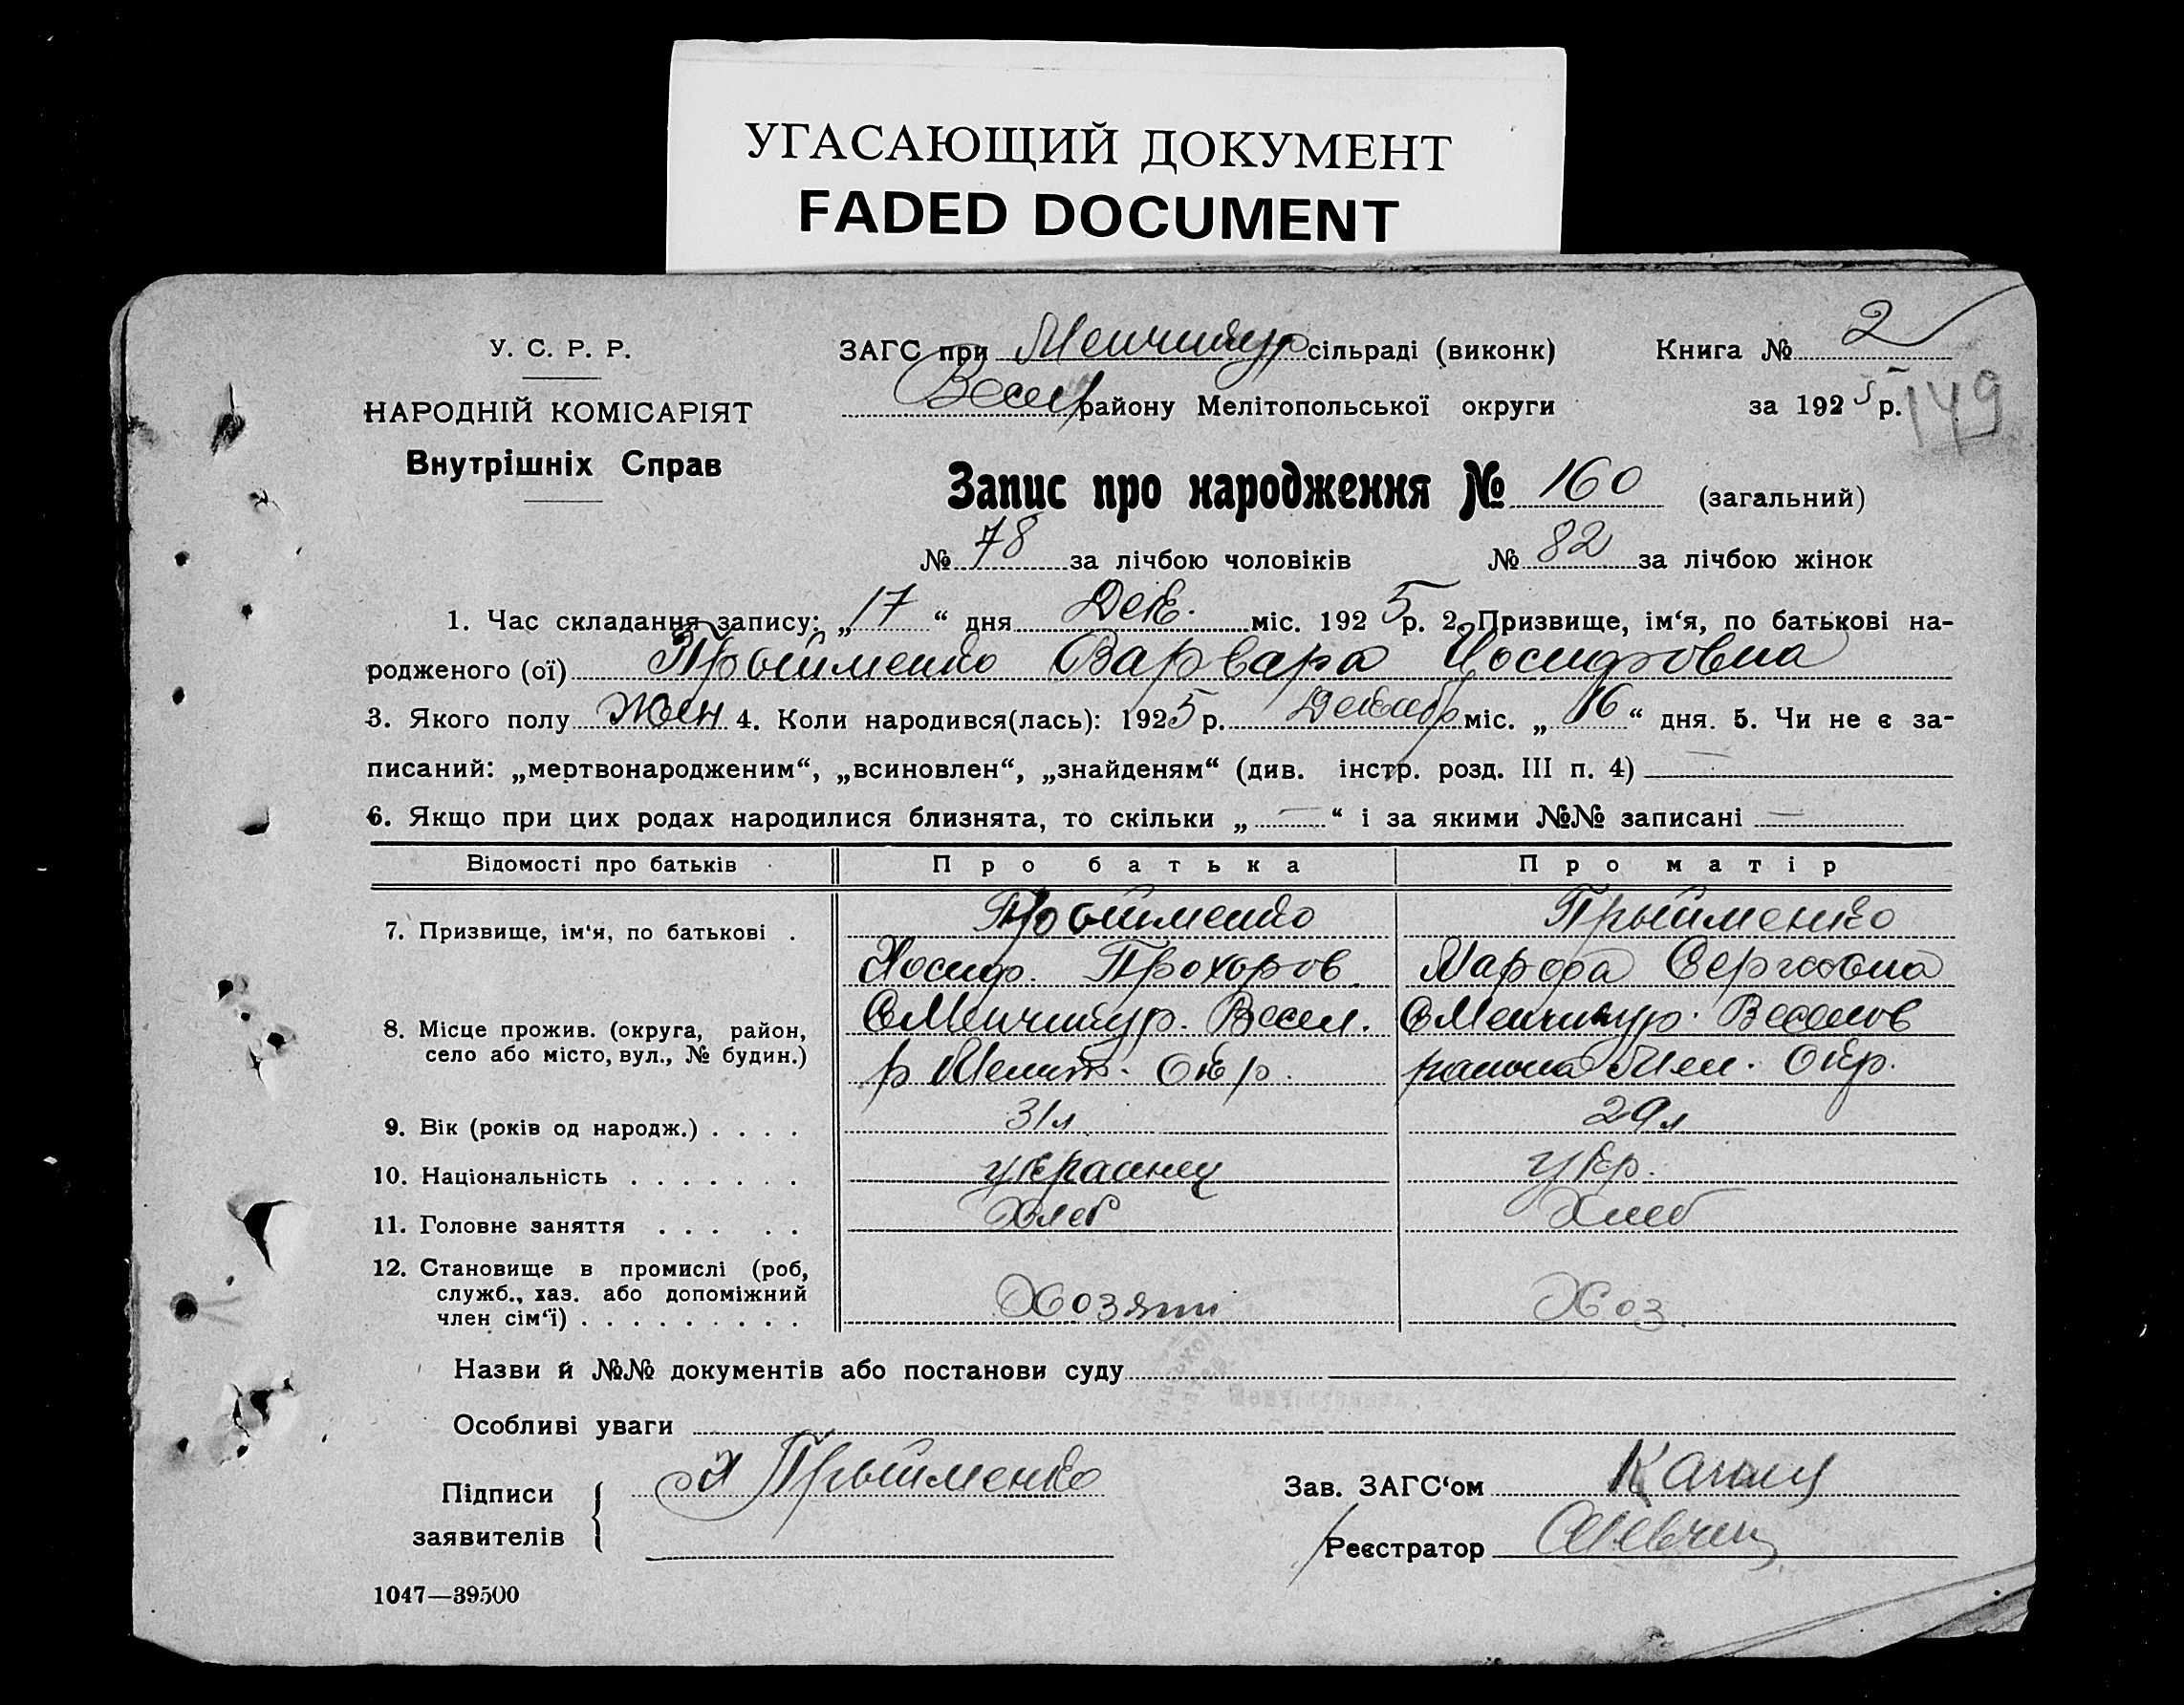 УГАСАЮЩИЙ ДОКУМЕНТ
FADED DOCUMENT
У. С. Р. Р.
НАРОДНІЙ КОМІСАРІЯТ
Внутрішніх Справ
ЗАГС при Менчикур сільраді (виконк)
Весел району Мелітопольської округи
Книга № 2
за 1925 р.
149
Запис про народження № 160 (загальний)
№ 78 за лічбою чоловіків № 82 за лічбою жінок
1. Час складання запису: „17“ дня Дек. міс. 1925 р. 2. Призвище, ім‘я, по батькові на-
родженого (ої) Прыйменко Варвара Иосифовна
3. Якого полу Жен 4. Коли народився(лась): 1925 р. Декабр міс. „16“ дня. 5. Чи не є за-
писаний: „мертвонародженим“, „всиновлен“, „знайденям“ (див. інстр. розд. III п. 4) —
6. Якщо при цих родах народилися близнята, то скільки „—“ і за якими №№ записані —
Відомості про батьків Про батька Про матір
7. Призвище, ім‘я, по батькові . Прыйменко Прыйменко
Иосиф. Прохоров. Марфа Сергеевна
8. Місце прожив. (округа, район, село або місто, вул., № будин.) С Менчикур. Весел. С Менчикур. Веселов
р Мелит. Окр. района Мел. Окр.
9. Вік (років од народж.) . . . . 31 л 29 л
10. Національність . . . . . . . украинец укр.
11. Головне заняття . . . . . Хлеб Хлеб
12. Становище в промислі (роб,
служб., хаз. або допоміжний
член сім‘ї) . . . . . . . . . Хозяин Хоз.
Назви й №№ документів або постанови суду
Особливі уваги
Підписи заявителів Прыйменко
Зав. ЗАГС‘ом
Реєстратор
1047—39500